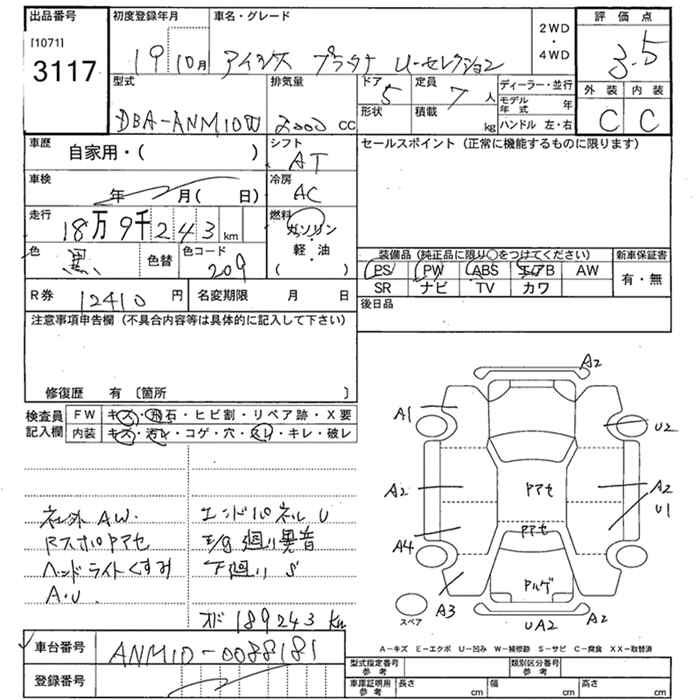 出品番号 初度登録年月 車名・グレード 2WD・4WD 評価点
[1071]
3117 19 10月 アイシス プラタナ U-セレクション 3.5
型式 排気量 ドア 5 定員 7人 ディーラー・並行 外装 内装
DBA-ANM10W 2000 cc 形状 積載 kg モデル年式 年 C C
ハンドル 左・右
車歴 自家用・( ) シフト AT セールスポイント (正常に機能するものに限ります)
車検 年 月( 日) 冷房 AC
走行 18万9千243km 燃料 ガソリン・軽・油 ( )
色 黒 色替 色コード 209 装備品 (純正品に限り○をつけてください) 新車保証書
PS PW ABS エアB AW 有・無
SR ナビ TV カワ
R券 12410円 名変期限 月 日 後日品
注意事項申告欄 (不具合内容等は具体的に記入して下さい)
修復歴 有 〔箇所 〕
検査員記入欄 FW キズ・飛石・ヒビ割・リペア跡・X要
内装 キズ・汚レ・コゲ・穴・スレ・キレ・破レ
A2
A1 U2
A2 Pアセ A2
U1
A4 Pアセ
A3 Pハゲ
スペア UA2 A2
社外AW. エンドパネルU
RスポPアセ E/g廻り異音
ヘッドライトくすみ 下廻りS
A・U.
オド 189243km
A-キズ E-エクボ U-凹み W-補修跡 S-サビ C-腐食 XX-取替済
車台番号 ANM10-0088181 型式指定番号 参考 類別区分番号 参考
登録番号 車庫証明用 参考 長さ cm 幅 cm 高さ cm